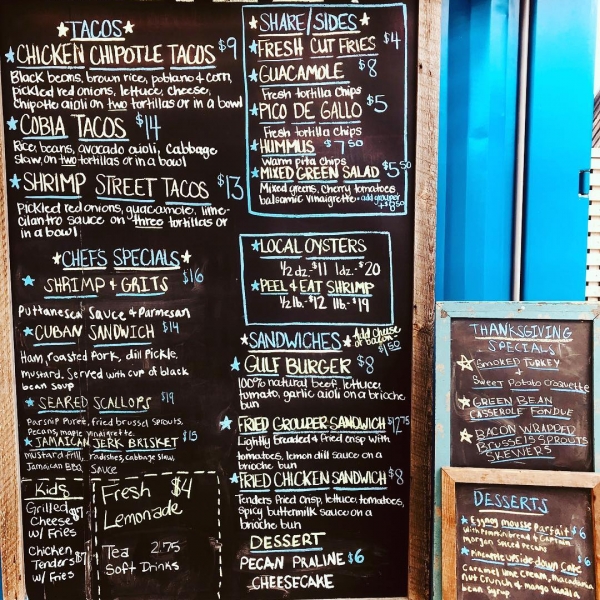 TACOS
CHICKEN CHIPOTLE TACOS $9
Black beans, brown rice, poblano & corn,
pickled red onions, lettuce, cheese,
chipotle aioli on two tortillas or in a bowl
COBIA TACOS $14
Rice, beans, avocado aioli, cabbage
slaw, on two tortillas or in a bowl
SHRIMP STREET TACOS $13
Pickled red onions, guacamole, lime-
cilantro sauce on three tortillas or
in a bowl
CHEFS SPECIALS
SHRIMP & GRITS $16
Puttanesca Sauce & Parmesan
CUBAN SANDWICH $14
Ham, roasted pork, dill pickle,
mustard. Served with cup of black
bean soup
SEARED SCALLOPS $19
Parsnip Puree, fried brussel sprouts,
Pecans, maple vinaigrette
JAMAICAN JERK BRISKET $15
mustard frill, radishes, cabbage slaw,
Jamaican BBQ Sauce
Kids
Grilled
Cheese $7
w/ Fries
Chicken
Tenders $7
w/ Fries
Fresh $4
Lemonade
Tea 2.75
Soft Drinks
SHARE/SIDES
FRESH CUT FRIES $4
GUACAMOLE $8
Fresh tortilla chips
PICO DE GALLO $5
Fresh tortilla chips
HUMMUS $7.50
Warm pita chips
MIXED GREEN SALAD $5.50
Mixed greens, cherry tomatoes,
balsamic vinaigrette - add grouper
+$8.50
LOCAL OYSTERS
1/2 dz. $11 1dz. $20
PEEL & EAT SHRIMP
1/2 lb. $12 1lb. $19
SANDWICHES Add cheese
or bacon
$1.50
GULF BURGER $8
100% natural beef, lettuce,
tomato, garlic aioli on a brioche
bun
FRIED GROUPER SANDWICH $12.75
Lightly breaded & fried crisp with
tomatoes, lemon dill sauce on a
brioche bun
FRIED CHICKEN SANDWICH $8
Tenders fried crisp, lettuce, tomatoes,
spicy buttermilk sauce on a
brioche bun
DESSERT
PECAN PRALINE $6
CHEESECAKE
THANKSGIVING
SPECIALS
SMOKED TURKEY
Sweet Potato Croquette
GREEN BEAN
CASSEROLE FONDUE
BACON WRAPPED
BRUSSELS SPROUTS
SKEWERS
DESSERTS
Eggnog mousse Parfait $6
with Pumpkin bread & Captain
morgan spiced pecans
Pineapple Upside-down Cake $6
Caramel lime cream, macadamia
nut crunch & mango vanilla
bean syrup